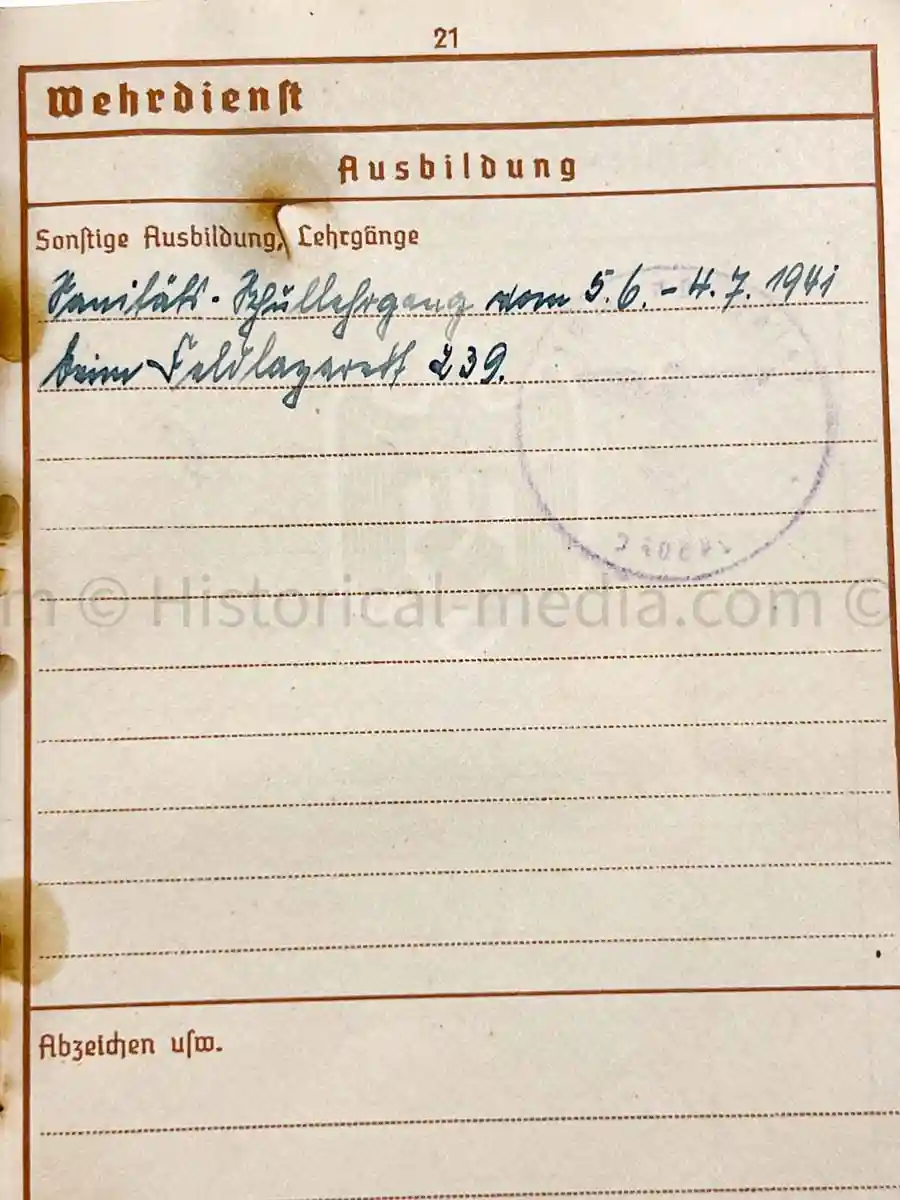 21
Wehrdienst
Ausbildung
Sonstige Ausbildung, Lehrgänge
Sanitäts-Schullehrgang vom 5.6.-4.7.1941
beim Feldlazarett 239.
m © Historical-media.com ©
Abzeichen usw.